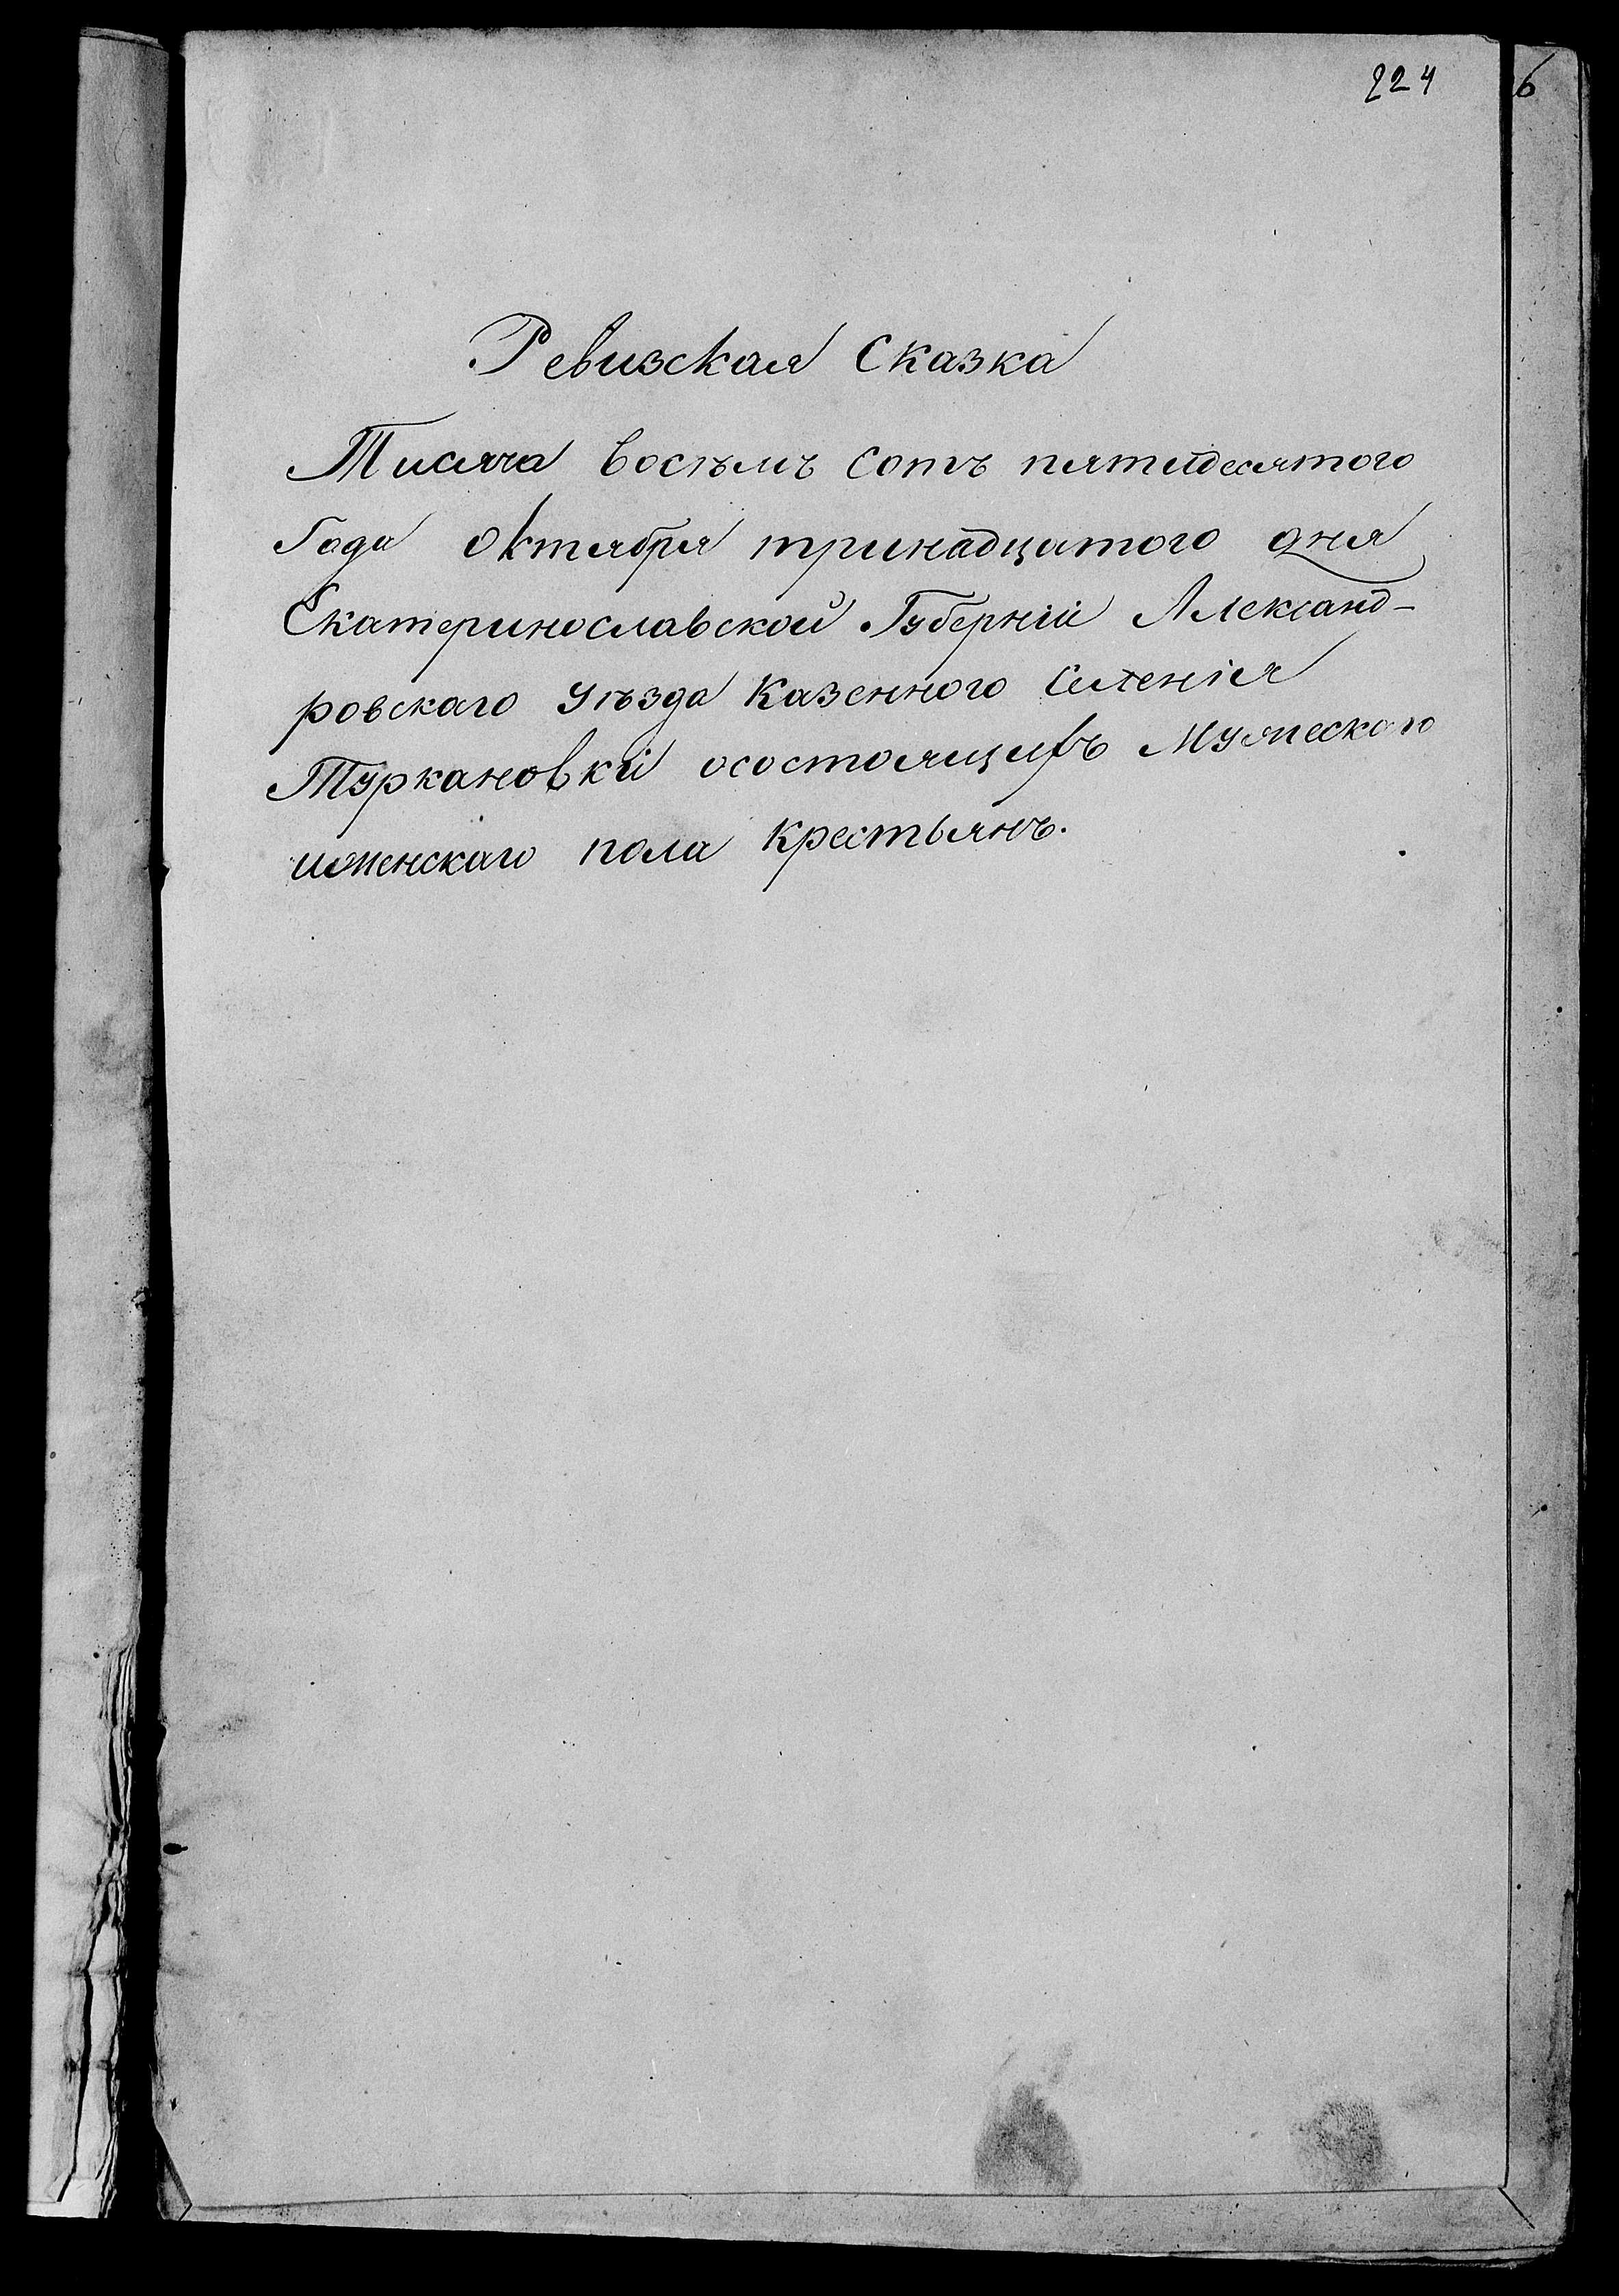 224
6
Ревизская Сказка
Тисяча Восѣмъ Сотъ пятидесятого
Года Октября тринадцатого дня
Екатеринославской Губерніи Александ-
ровскаго Уѣзда Казенного Селенія
Туркановкй осостоящихъ Мужескаго
иженскаго пола Крестьянъ.